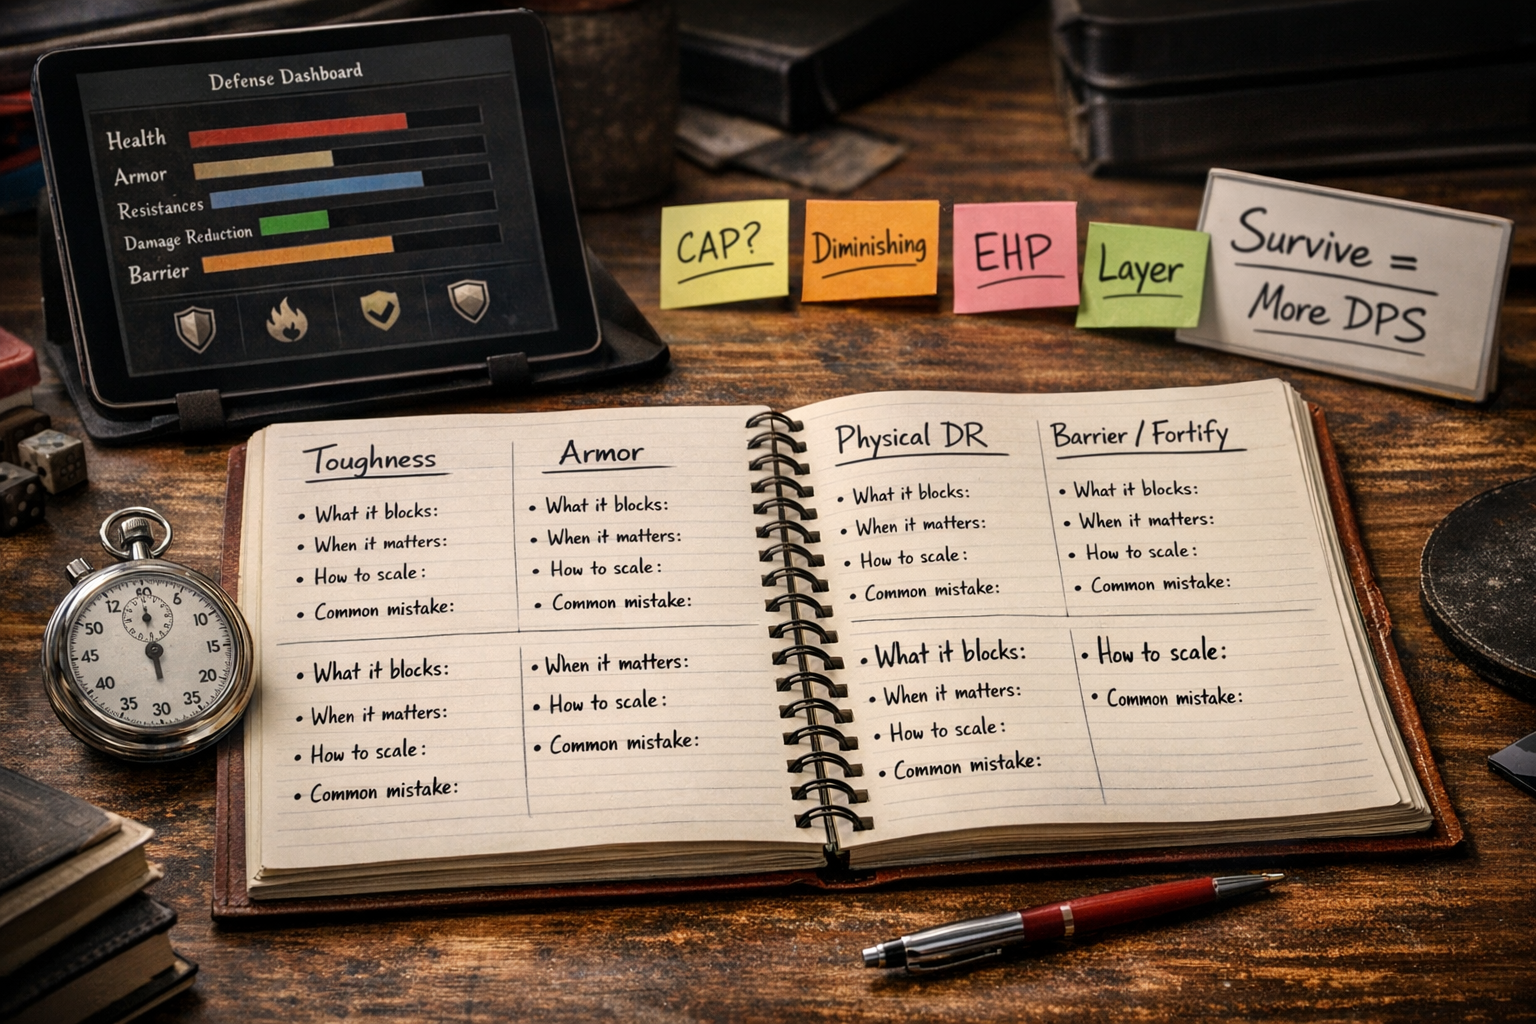 Defense Dashboard
Health
Armor
Resistances
Damage Reduction
Barrier
CAP?
Diminishing
EHP
Layer
Survive =
More DPS
Toughness
• What it blocks:
• When it matters:
• How to scale:
• Common mistake:
Armor
• What it blocks:
• When it matters:
• How to scale:
• Common mistake:
• What it blocks:
• When it matters:
• How to scale:
• Common mistake:
• When it matters:
• How to scale:
• Common mistake:
Physical DR
• What it blocks:
• When it matters:
• How to scale:
• Common mistake:
Barrier / Fortify
• What it blocks:
• When it matters:
• How to scale:
• Common mistake:
• What it blocks:
• When it matters:
• How to scale:
• Common mistake:
• How to scale:
• Common mistake:
60
6
10
15
20
35
30
35
40
45
50
12